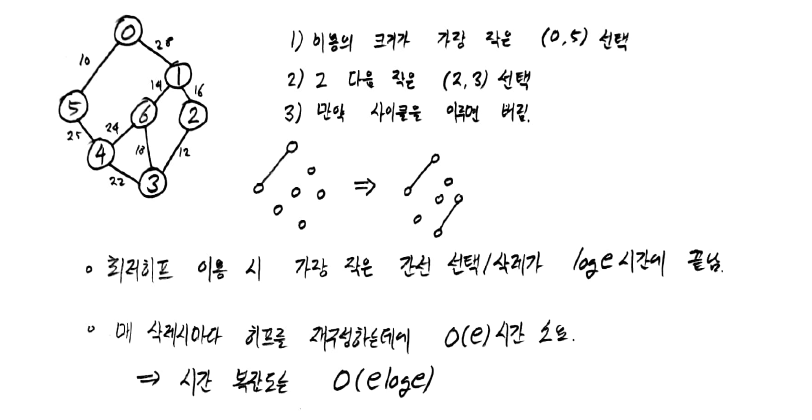 0
28
10
1
14
16
5
6
2
25
24
18
12
4
22
3
1) 비용의 크기가 가장 작은 (0,5) 선택
2) 그 다음 작은 (2,3) 선택
3) 만약 사이클을 이루면 버림.
⇒
○ 최소히프 이용 시 가장 작은 간선 선택/삭제가 loge 시간에 끝남.
○ 매 삭제시마다 히프를 재구성하는데에 O(e) 시간 소요.
⇒ 시간 복잡도는 O(eloge)